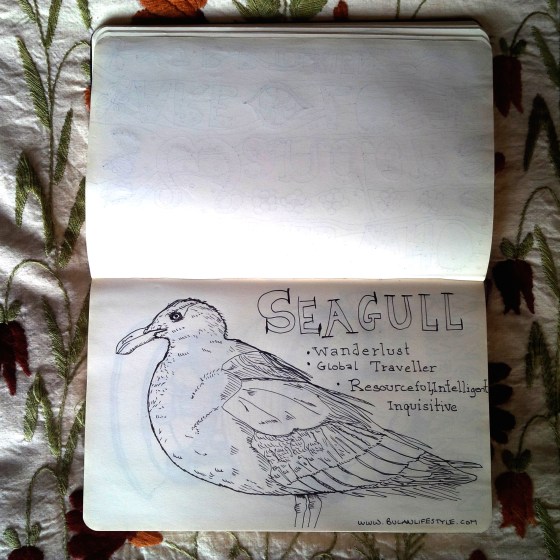 SEAGULL
• Wanderlust
• Global Traveller
• Resourceful, Intelligent
Inquisitive
WWW.BULANLIFESTYLE.COM